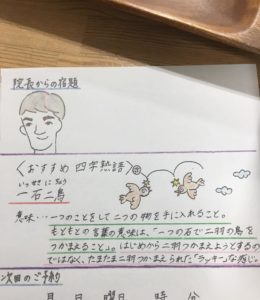 院長からの宿題
〈おすすめ 四字熟語〉
いっせきにちょう
一石二鳥
意味…一つのことをして二つの物を手に入れること。
もともとの言葉の意味は、「一つの石で二羽の鳥を
つかまえること」。はじめから二羽つかまえようとするの
ではなく、たまたま二羽つかまえられた「ラッキー」な感じ。
次回のご予約
月 日 曜日 時 分